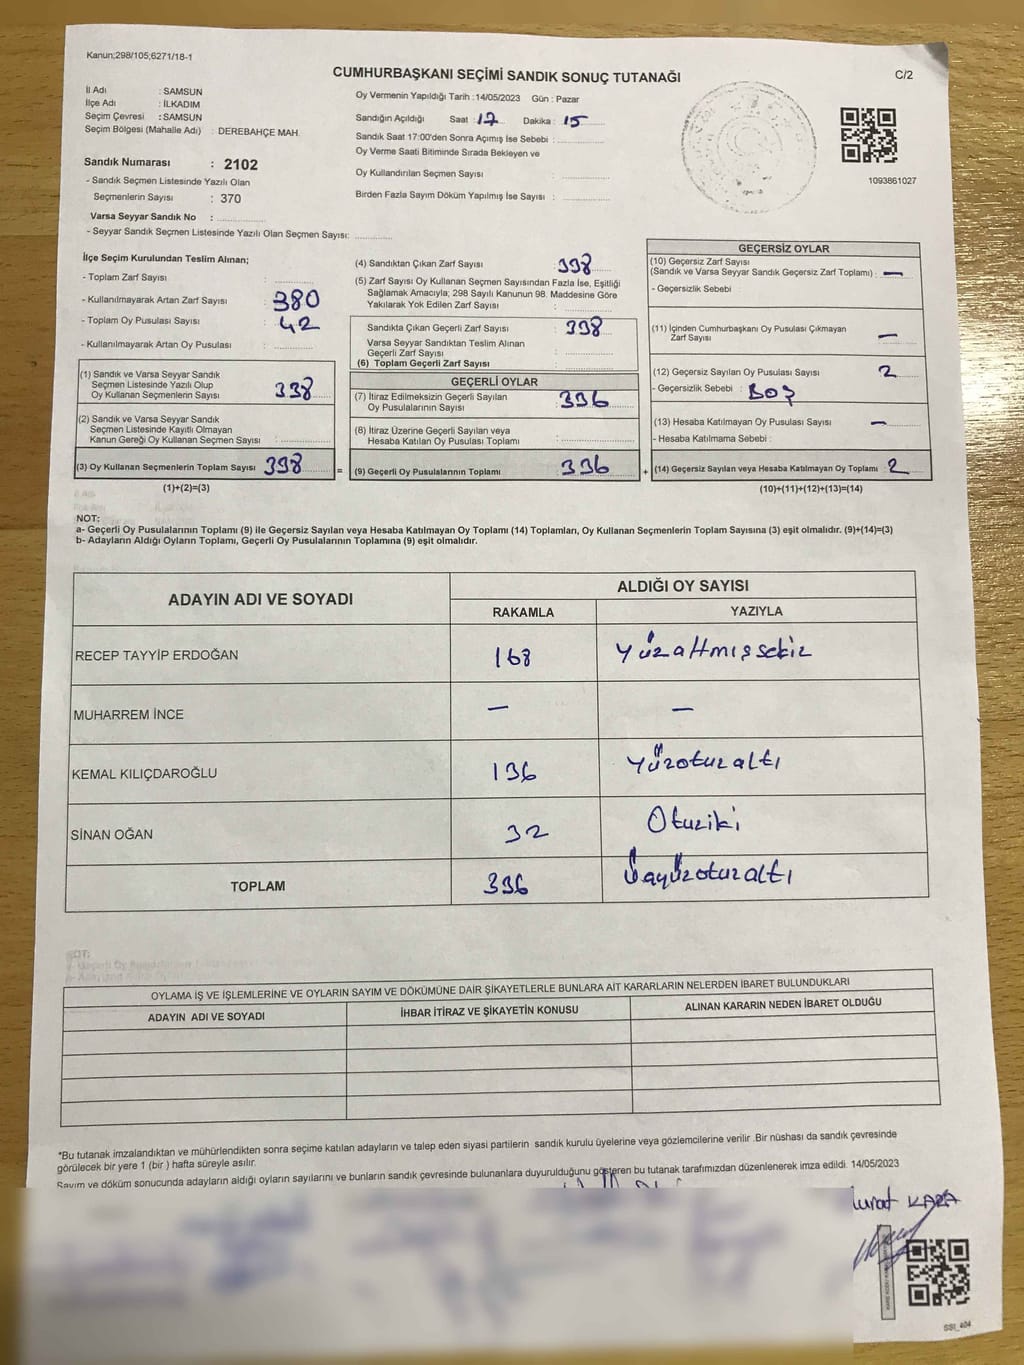 Kanun;298/105;6271/18-1
CUMHURBAŞKANI SEÇİMİ SANDIK SONUÇ TUTANAĞI
C/2
İl Adı : SAMSUN
İlçe Adı : İLKADIM
Seçim Çevresi : SAMSUN
Seçim Bölgesi (Mahalle Adı) : DEREBAHÇE MAH.
Sandık Numarası : 2102
- Sandık Seçmen Listesinde Yazılı Olan
Seçmenlerin Sayısı : 370
Varsa Seyyar Sandık No :
- Seyyar Sandık Seçmen Listesinde Yazılı Olan Seçmen Sayısı:
Oy Vermenin Yapıldığı Tarih :14/05/2023 Gün : Pazar
Sandığın Açıldığı Saat : 17 Dakika : 15
Sandık Saat 17:00'den Sonra Açımış İse Sebebi :
Oy Verme Saati Bitiminde Sırada Bekleyen ve
Oy Kullandırılan Seçmen Sayısı :
Birden Fazla Sayım Döküm Yapılmış İse Sayısı :
1093861027
İlçe Seçim Kurulundan Teslim Alınan;
- Toplam Zarf Sayısı :
- Kullanılmayarak Artan Zarf Sayısı : 380
- Toplam Oy Pusulası Sayısı : 42
- Kullanılmayarak Artan Oy Pusulası :
(1) Sandık ve Varsa Seyyar Sandık
Seçmen Listesinde Yazılı Olup
Oy Kullanan Seçmenlerin Sayısı : 338
(2) Sandık ve Varsa Seyyar Sandık
Seçmen Listesinde Kayıtlı Olmayan
Kanun Gereği Oy Kullanan Seçmen Sayısı :
(3) Oy Kullanan Seçmenlerin Toplam Sayısı 338
(1)+(2)=(3)
(4) Sandıktan Çıkan Zarf Sayısı 338
(5) Zarf Sayısı Oy Kullanan Seçmen Sayısından Fazla İse, Eşitliği
Sağlamak Amacıyla; 298 Sayılı Kanunun 98. Maddesine Göre
Yakılarak Yok Edilen Zarf Sayısı :
Sandıkta Çıkan Geçerli Zarf Sayısı : 338
Varsa Seyyar Sandıktan Teslim Alınan
Geçerli Zarf Sayısı :
(6) Toplam Geçerli Zarf Sayısı :
GEÇERLİ OYLAR
(7) İtiraz Edilmeksizin Geçerli Sayılan
Oy Pusulalarının Sayısı : 336
(8) İtiraz Üzerine Geçerli Sayılan veya
Hesaba Katılan Oy Pusulası Toplamı :
= (9) Geçerli Oy Pusulalarının Toplamı : 336 +
GEÇERSİZ OYLAR
(10) Geçersiz Zarf Sayısı
(Sandık ve Varsa Seyyar Sandık Geçersiz Zarf Toplamı) : —
- Geçersizlik Sebebi :
(11) İçinden Cumhurbaşkanı Oy Pusulası Çıkmayan
Zarf Sayısı : —
(12) Geçersiz Sayılan Oy Pusulası Sayısı : 2
- Geçersizlik Sebebi : BOŞ
(13) Hesaba Katılmayan Oy Pusulası Sayısı : —
- Hesaba Katılmama Sebebi :
(14) Geçersiz Sayılan veya Hesaba Katılmayan Oy Toplamı : 2
(10)+(11)+(12)+(13)=(14)
NOT:
a- Geçerli Oy Pusulalarının Toplamı (9) ile Geçersiz Sayılan veya Hesaba Katılmayan Oy Toplamı (14) Toplamları, Oy Kullanan Seçmenlerin Toplam Sayısına (3) eşit olmalıdır. (9)+(14)=(3)
b- Adayların Aldığı Oyların Toplamı, Geçerli Oy Pusulalarının Toplamına (9) eşit olmalıdır.
ADAYIN ADI VE SOYADI
ALDIĞI OY SAYISI
RAKAMLA YAZIYLA
RECEP TAYYİP ERDOĞAN 168 Yüzaltmışsekiz
MUHARREM İNCE — —
KEMAL KILIÇDAROĞLU 136 Yüzotuzaltı
SİNAN OĞAN 32 Otuziki
TOPLAM 336 Üçyüzotuzaltı
OYLAMA İŞ VE İŞLEMLERİNE VE OYLARIN SAYIM VE DÖKÜMÜNE DAİR ŞİKAYETLERLE BUNLARA AİT KARARLARIN NELERDEN İBARET BULUNDUKLARI
ADAYIN ADI VE SOYADI İHBAR İTİRAZ VE ŞİKAYETİN KONUSU ALINAN KARARIN NEDEN İBARET OLDUĞU
*Bu tutanak imzalandıktan ve mühürlendikten sonra seçime katılan adayların ve talep eden siyasi partilerin sandık kurulu üyelerine veya gözlemcilerine verilir .Bir nüshası da sandık çevresinde
görülecek bir yere 1 (bir ) hafta süreyle asılır.
Sayım ve döküm sonucunda adayların aldığı oyların sayılarını ve bunların sandık çevresinde bulunanlara duyurulduğunu gösteren bu tutanak tarafımızdan düzenlenerek imza edildi. 14/05/2023
KARA
SSİ_404